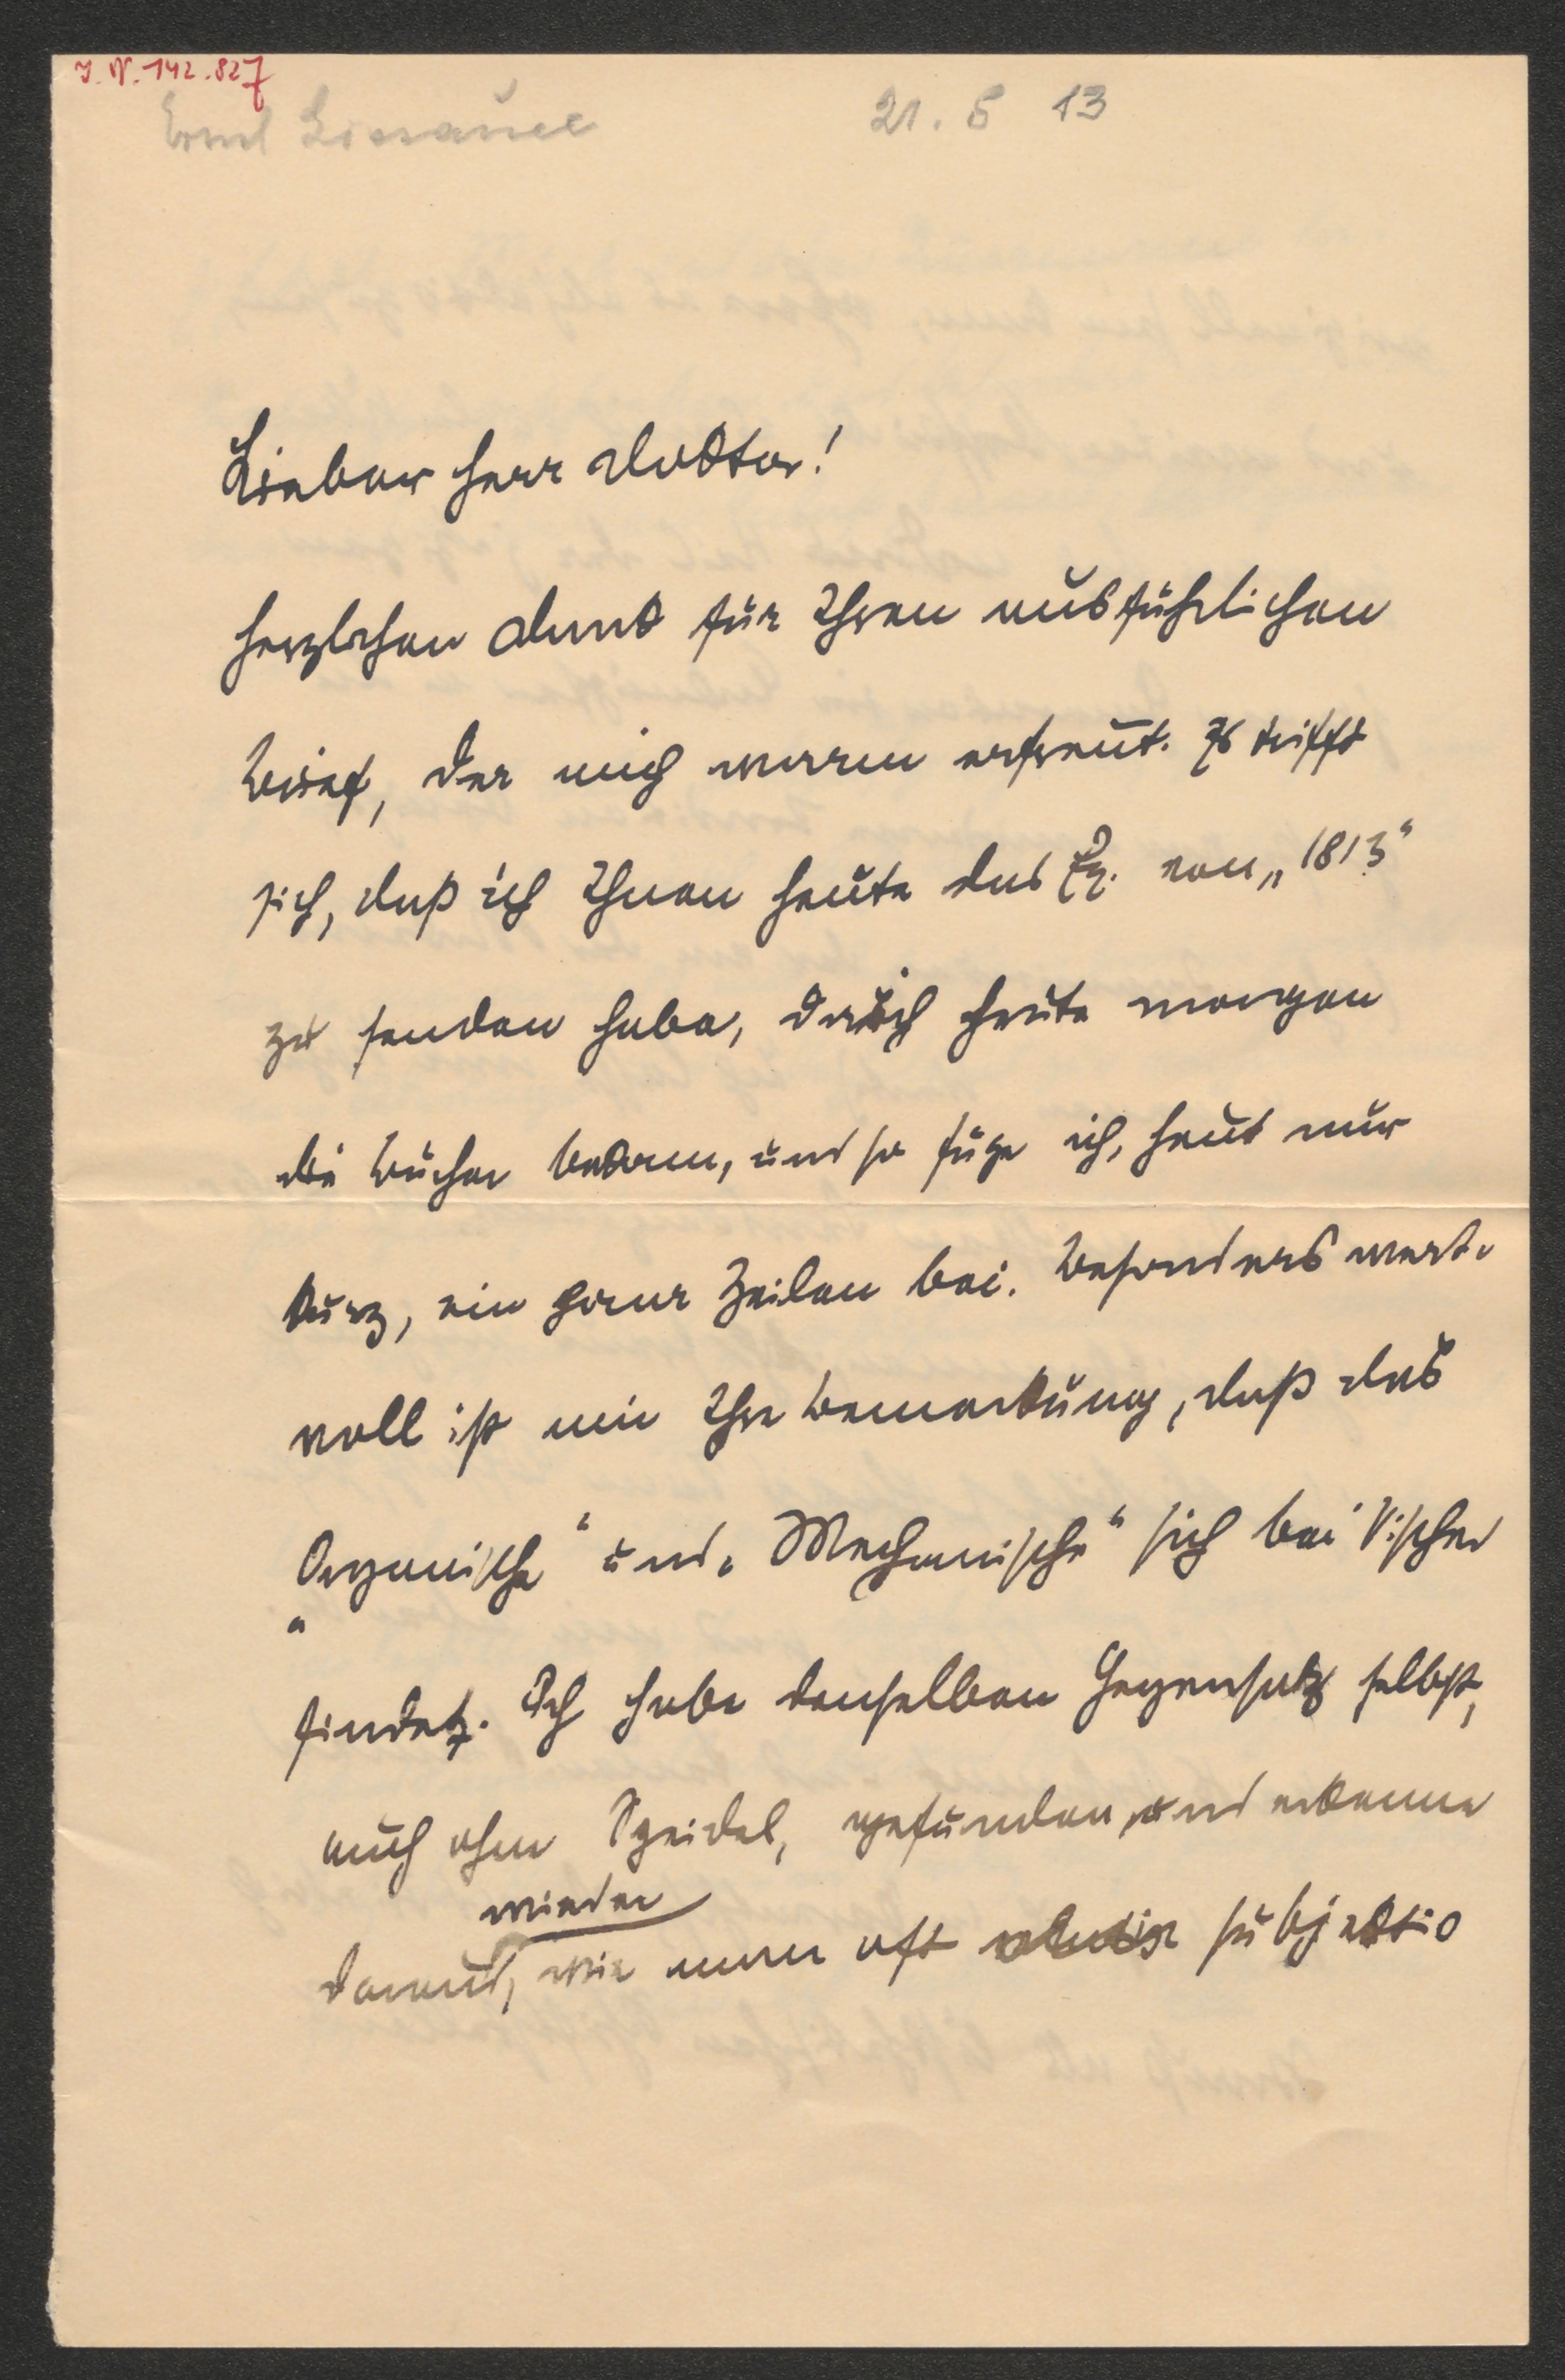 I. N. 142.827
Ernst Lissauer 21. 5 13
Lieber Herr Doktor!
herzlichen Dank für Ihren ausführlichen
Brief, der mich warm erfreut. Es trifft
sich, daß ich Ihnen heute das Ex. von „1813“
zu senden habe, da ich heute morgen
die Bücher bekam, und so füge ich, heut nur
kurz, ein paar Zeilen bei. Besonders wert-
voll ist mir Ihre Bemerkung, daß das
„Organische“ und „Mechanische“ sich bei Vischer
findet. Ich habe denselben Gegensatz selbst,
auch ohne Speidel, gefunden, und erkenne
wieder
daraus, wie man oft subjektiv